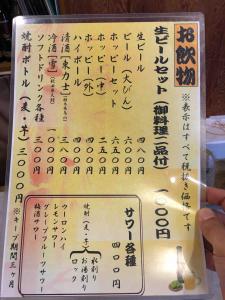 お飲物
※表示はすべて税抜き価格です
生ビールセット(御料理一品付) 一〇〇〇円
生ビール 四八〇円
ビール(大びん) 六五〇円
ホッピーセット 五〇〇円
ホッピー(中) 二五〇円
ホッピー(外)
ハイボール
清酒【東力士】
冷酒【雪】
ソフトドリンク各種
焼酎ボトル(麦・芋) 三〇〇〇円
※キープ期間三ヶ月
サワー各種 四〇〇円
焼酎(麦・芋)
水割り
お湯割り
ロック
ウーロンハイ
レモンサワー
グレープフルーツサワー
梅酒サワー